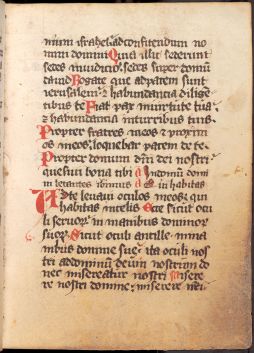 nium israhel ad confitendum no
mini domini Quia illic sederunt
sedes in iudicio sedes super domū
dauid Rogate que ad pacem sunt
ierusalem ⁊ habundantia dilige
tibus te Fiat pax in uirtute tua
⁊ habundantia in turribus tuis
Propter fratres meos ⁊ proxim
os meos loquebar pacem de te
Propter domum dn̄i dei nostri
quesiui bona tibi In domū domi
ni letantes ibimus in habitas
Ad te leuaui oculos meos qui
habitas in celis Ecce sicut ocu
li seruoꝝ in manibus dominoꝝ
suoꝝ Sicut oculi ancille in ma
nibus domine sue ita oculi nos
tri ad dominū deum nostrum do
nec misereatur nostri Misere
re nostri domine miserere nr̄i